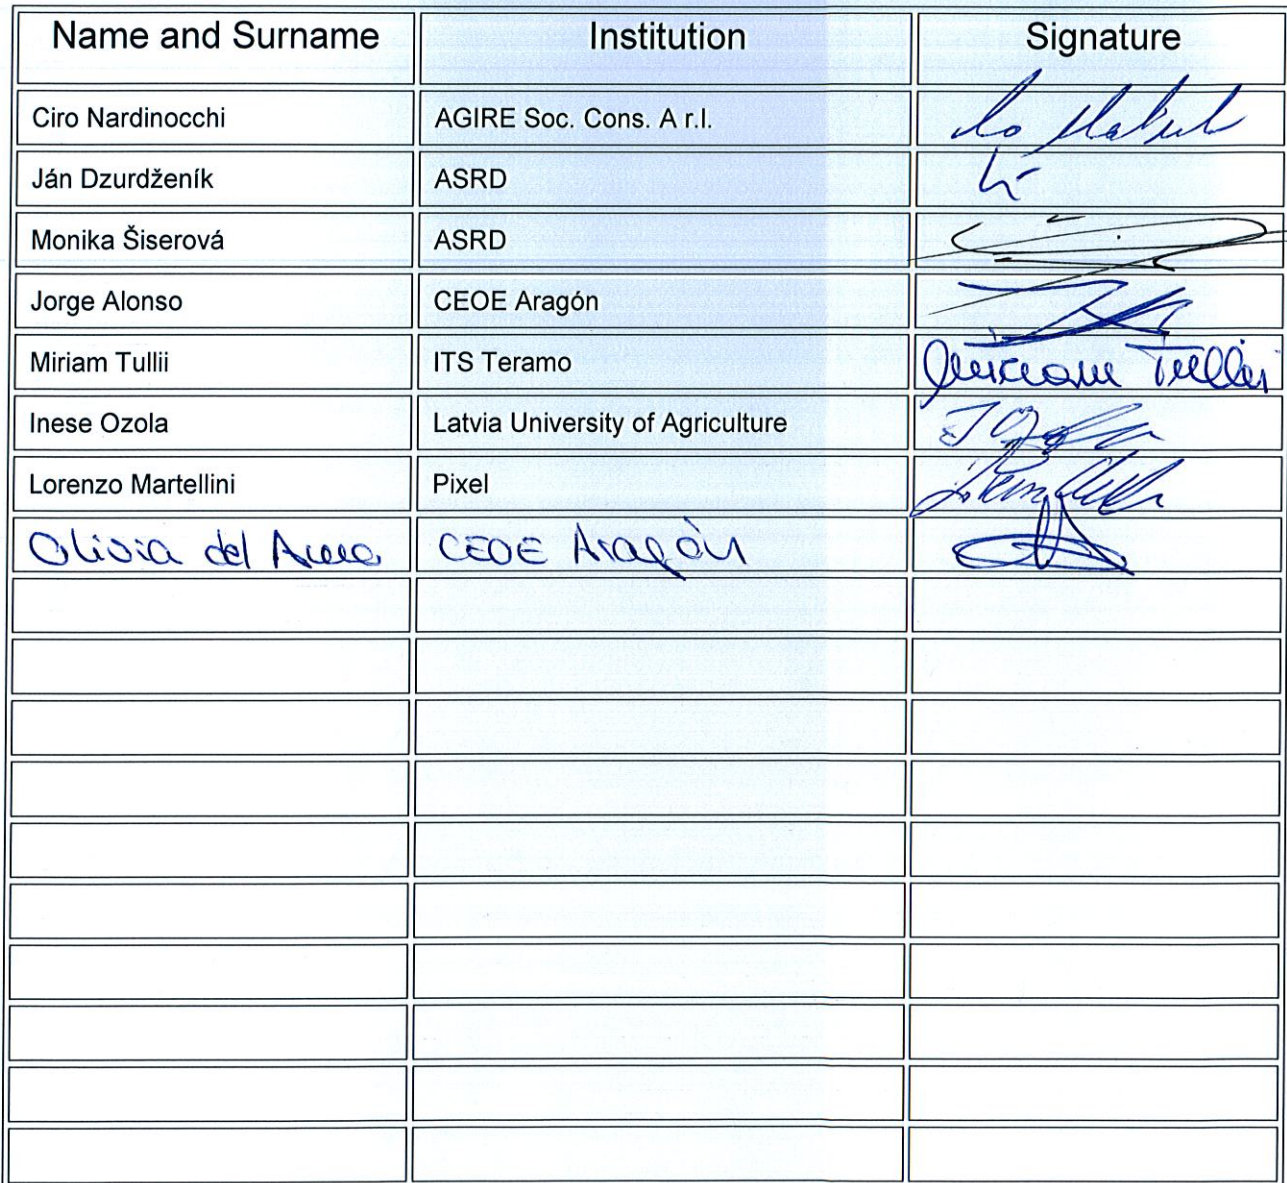 Name and Surname Institution Signature
Ciro Nardinocchi AGIRE Soc. Cons. A r.l.
Ján Dzurdženík ASRD
Monika Šiserová ASRD
Jorge Alonso CEOE Aragón
Miriam Tullii ITS Teramo Miriam Tullii
Inese Ozola Latvia University of Agriculture
Lorenzo Martellini Pixel
Olivia del Amo CEOE Aragón